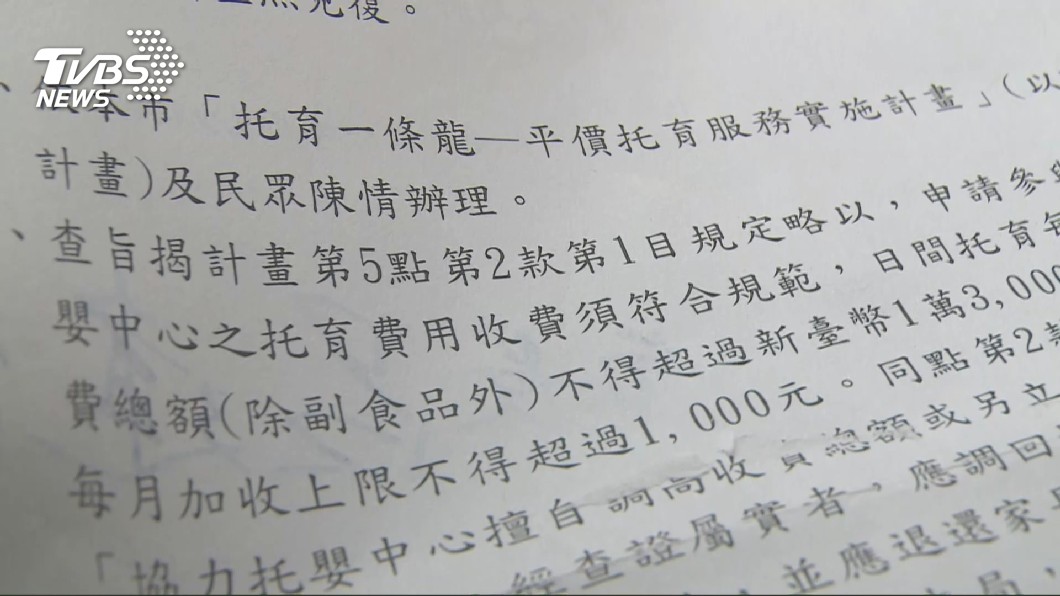 TVBS
NEWS
復。
本市「托育一條龍—平價托育服務實施計畫」(以
計畫)及民眾陳情辦理。
、查旨揭計畫第5點第2款第1目規定略以,申請參與
嬰中心之托育費用收費須符合規範,日間托育每
費總額(除副食品外)不得超過新臺幣1萬3,000
每月加收上限不得超過1,000元。同點第2款
「協力托嬰中心擅自調高收費總額或另立
經查證屬實者,應調回
,並應退還家
局,